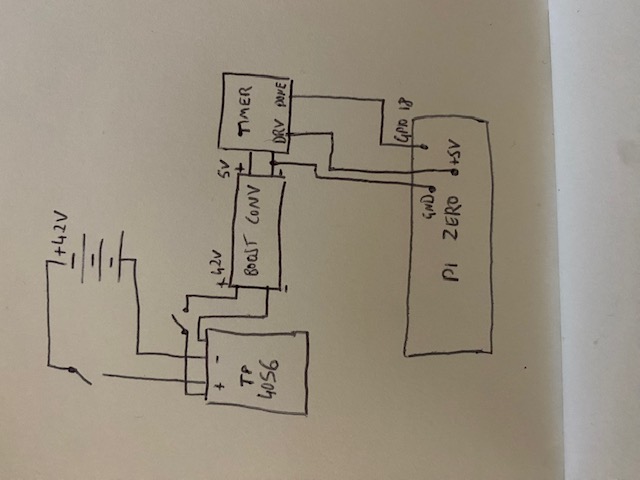 +42V
+ -
TP
4056
+ 42V
-
BOOST CONV
5V
+
-
TIMER
DRV DONE
GPIO 18
GND
PI ZERO +5V